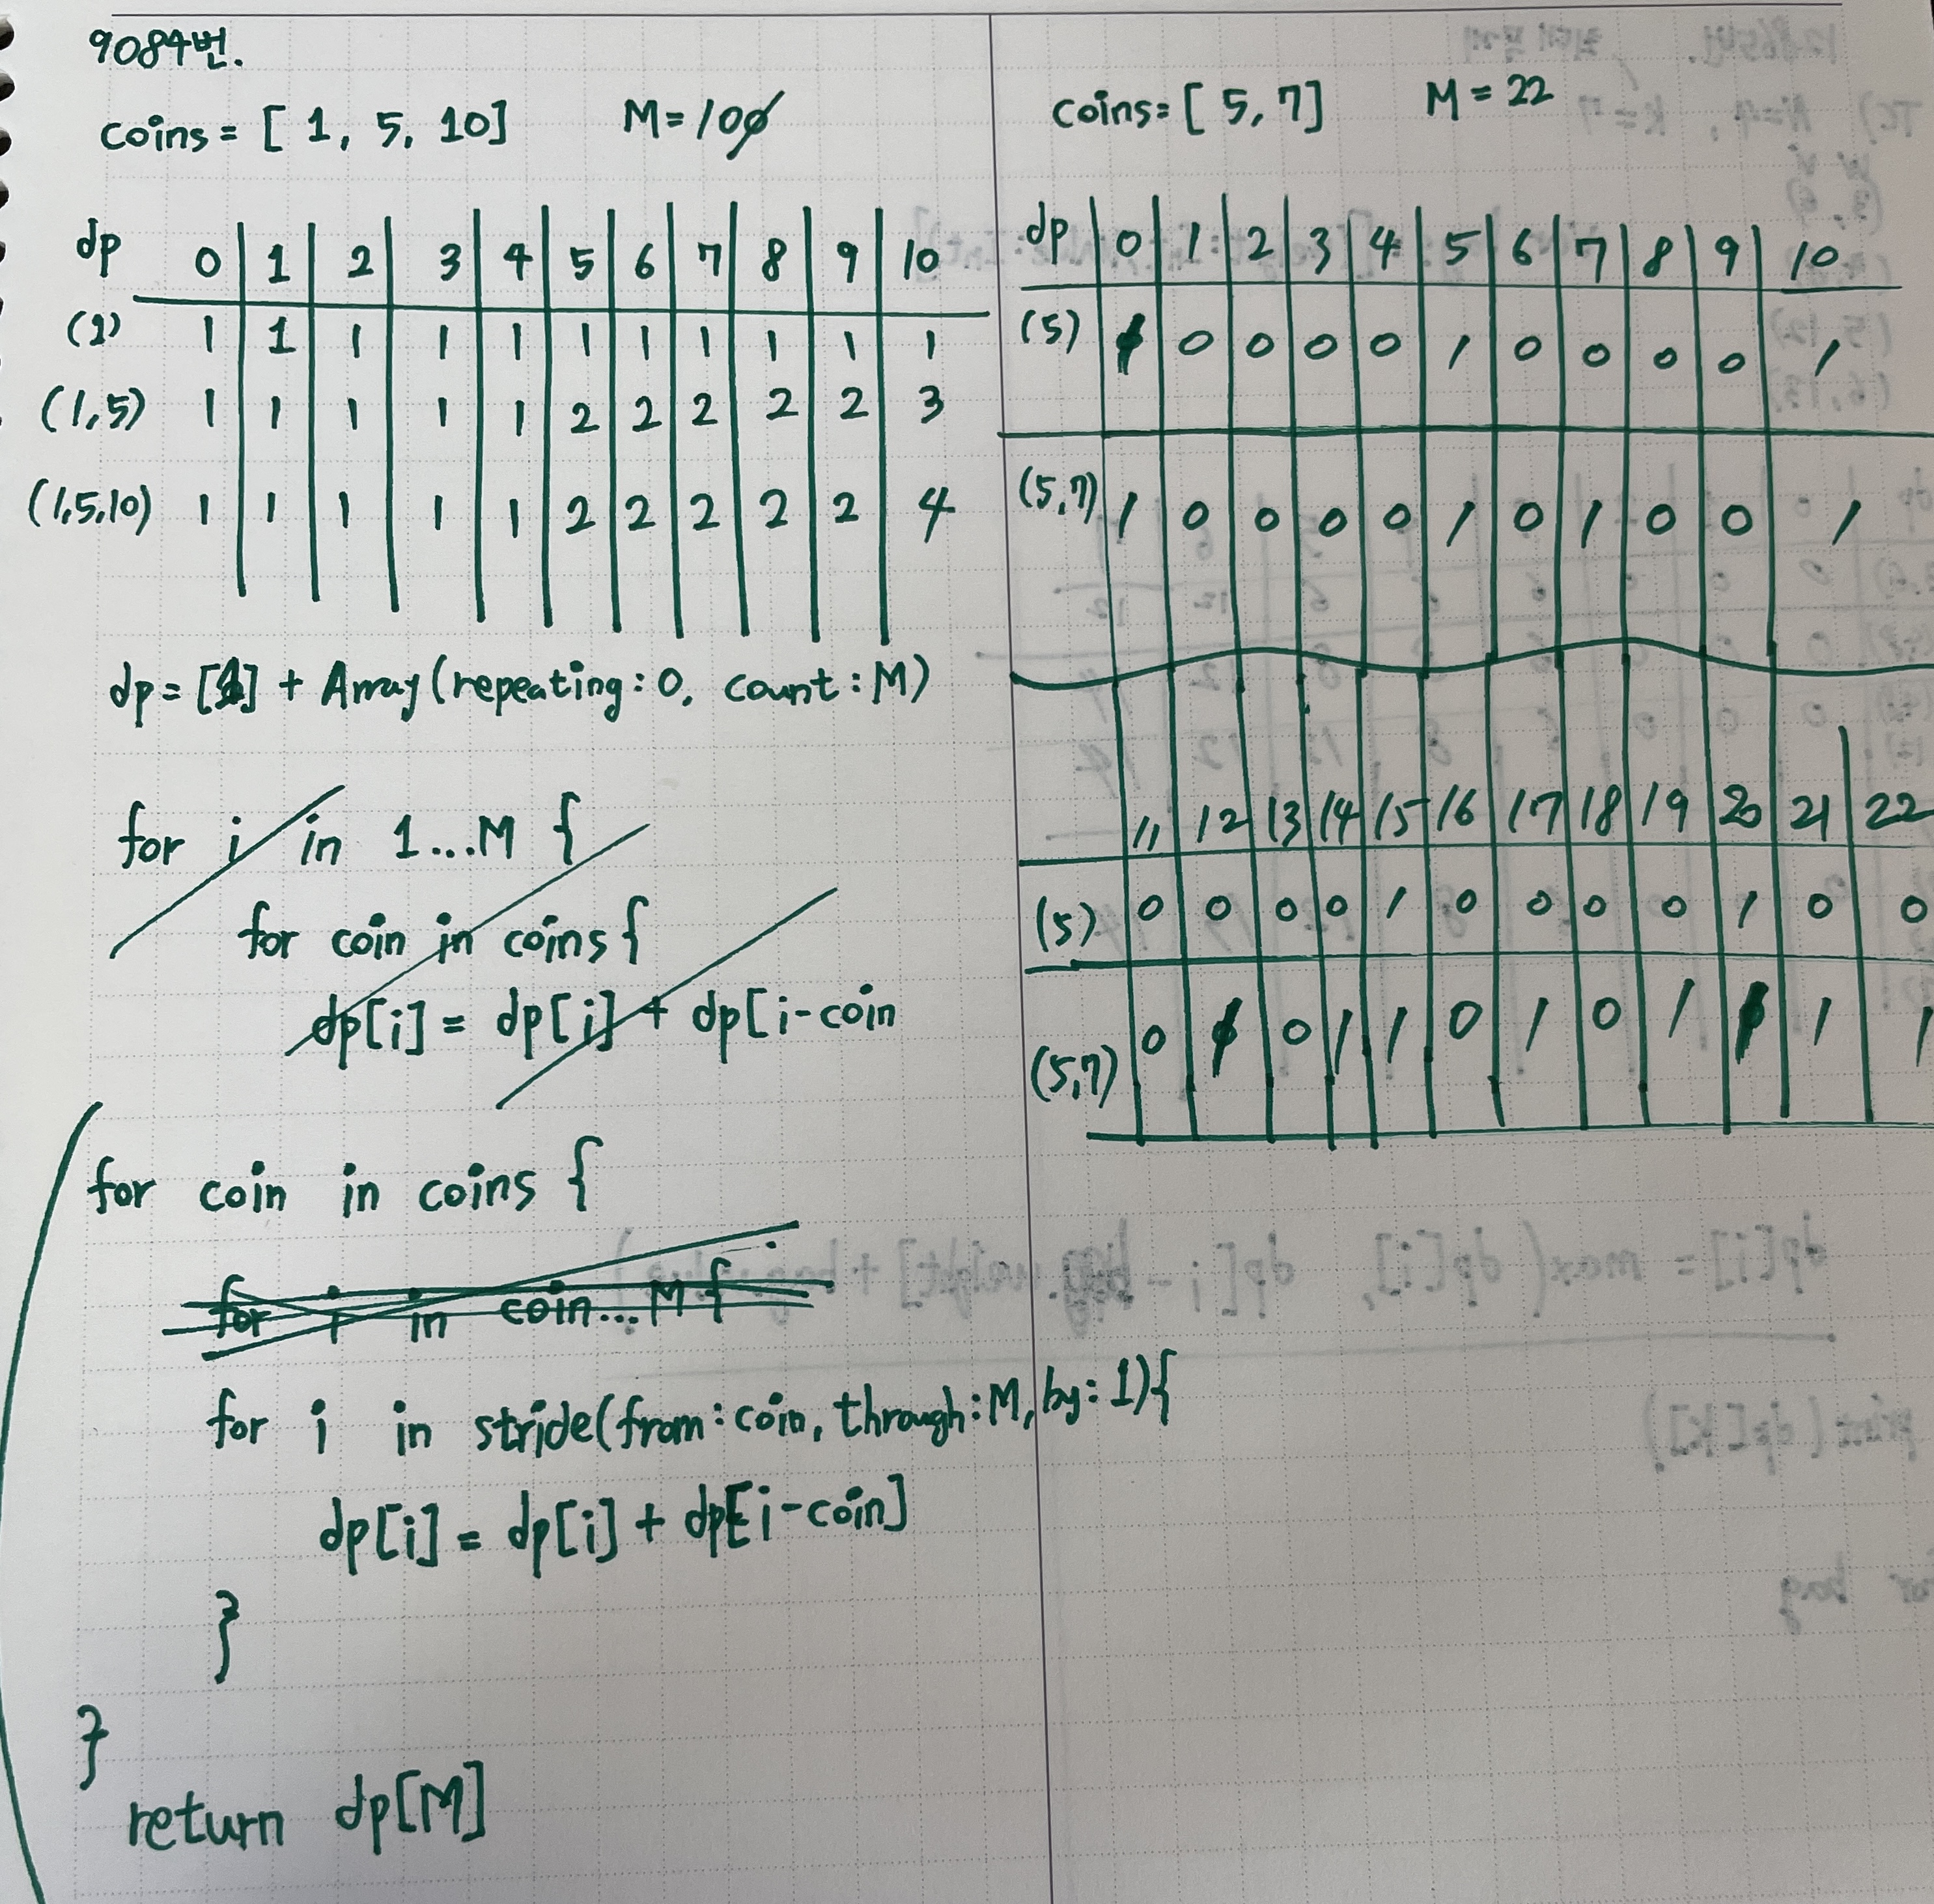 9084번.
coins = [ 1, 5, 10] M = 100
dp 0 1 2 3 4 5 6 7 8 9 10
(1) 1 1 1 1 1 1 1 1 1 1 1
(1,5) 1 1 1 1 1 2 2 2 2 2 3
(1,5,10) 1 1 1 1 1 2 2 2 2 2 4
dp = [1] + Array(repeating: 0, count: M)
for i in 1...M {
for coin in coins {
dp[i] = dp[i] + dp[i-coin
for coin in coins {
for i in coin...M {
for i in stride(from: coin, through: M, by: 1){
dp[i] = dp[i] + dp[i-coin]
}
}
return dp[M]
coins = [ 5, 7] M = 22
dp 0 1 2 3 4 5 6 7 8 9 10
(5) 1 0 0 0 0 1 0 0 0 0 1
(5,7) 1 0 0 0 0 1 0 1 0 0 1
11 12 13 14 15 16 17 18 19 20 21 22
(5) 0 0 0 0 1 0 0 0 0 1 0 0
(5,7) 0 1 0 1 1 0 1 0 1 1 1 1